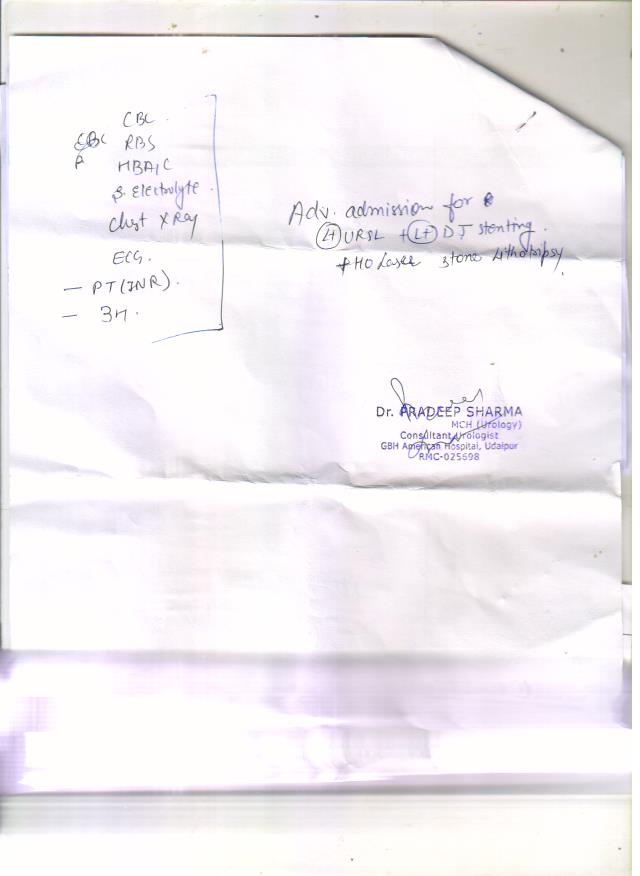 CBC
RBS
HBA1C
S. Electrolyte
Chest X Ray
ECG.
— PT (INR).
— 3H.
Adv. admission for
Lt URSL + Lt DJ stenting.
+ HO Laser stone Lithotripsy
Dr. PRADEEP SHARMA
MCH (Urology)
Consultant Urologist
GBH American Hospital, Udaipur
RMC-025698